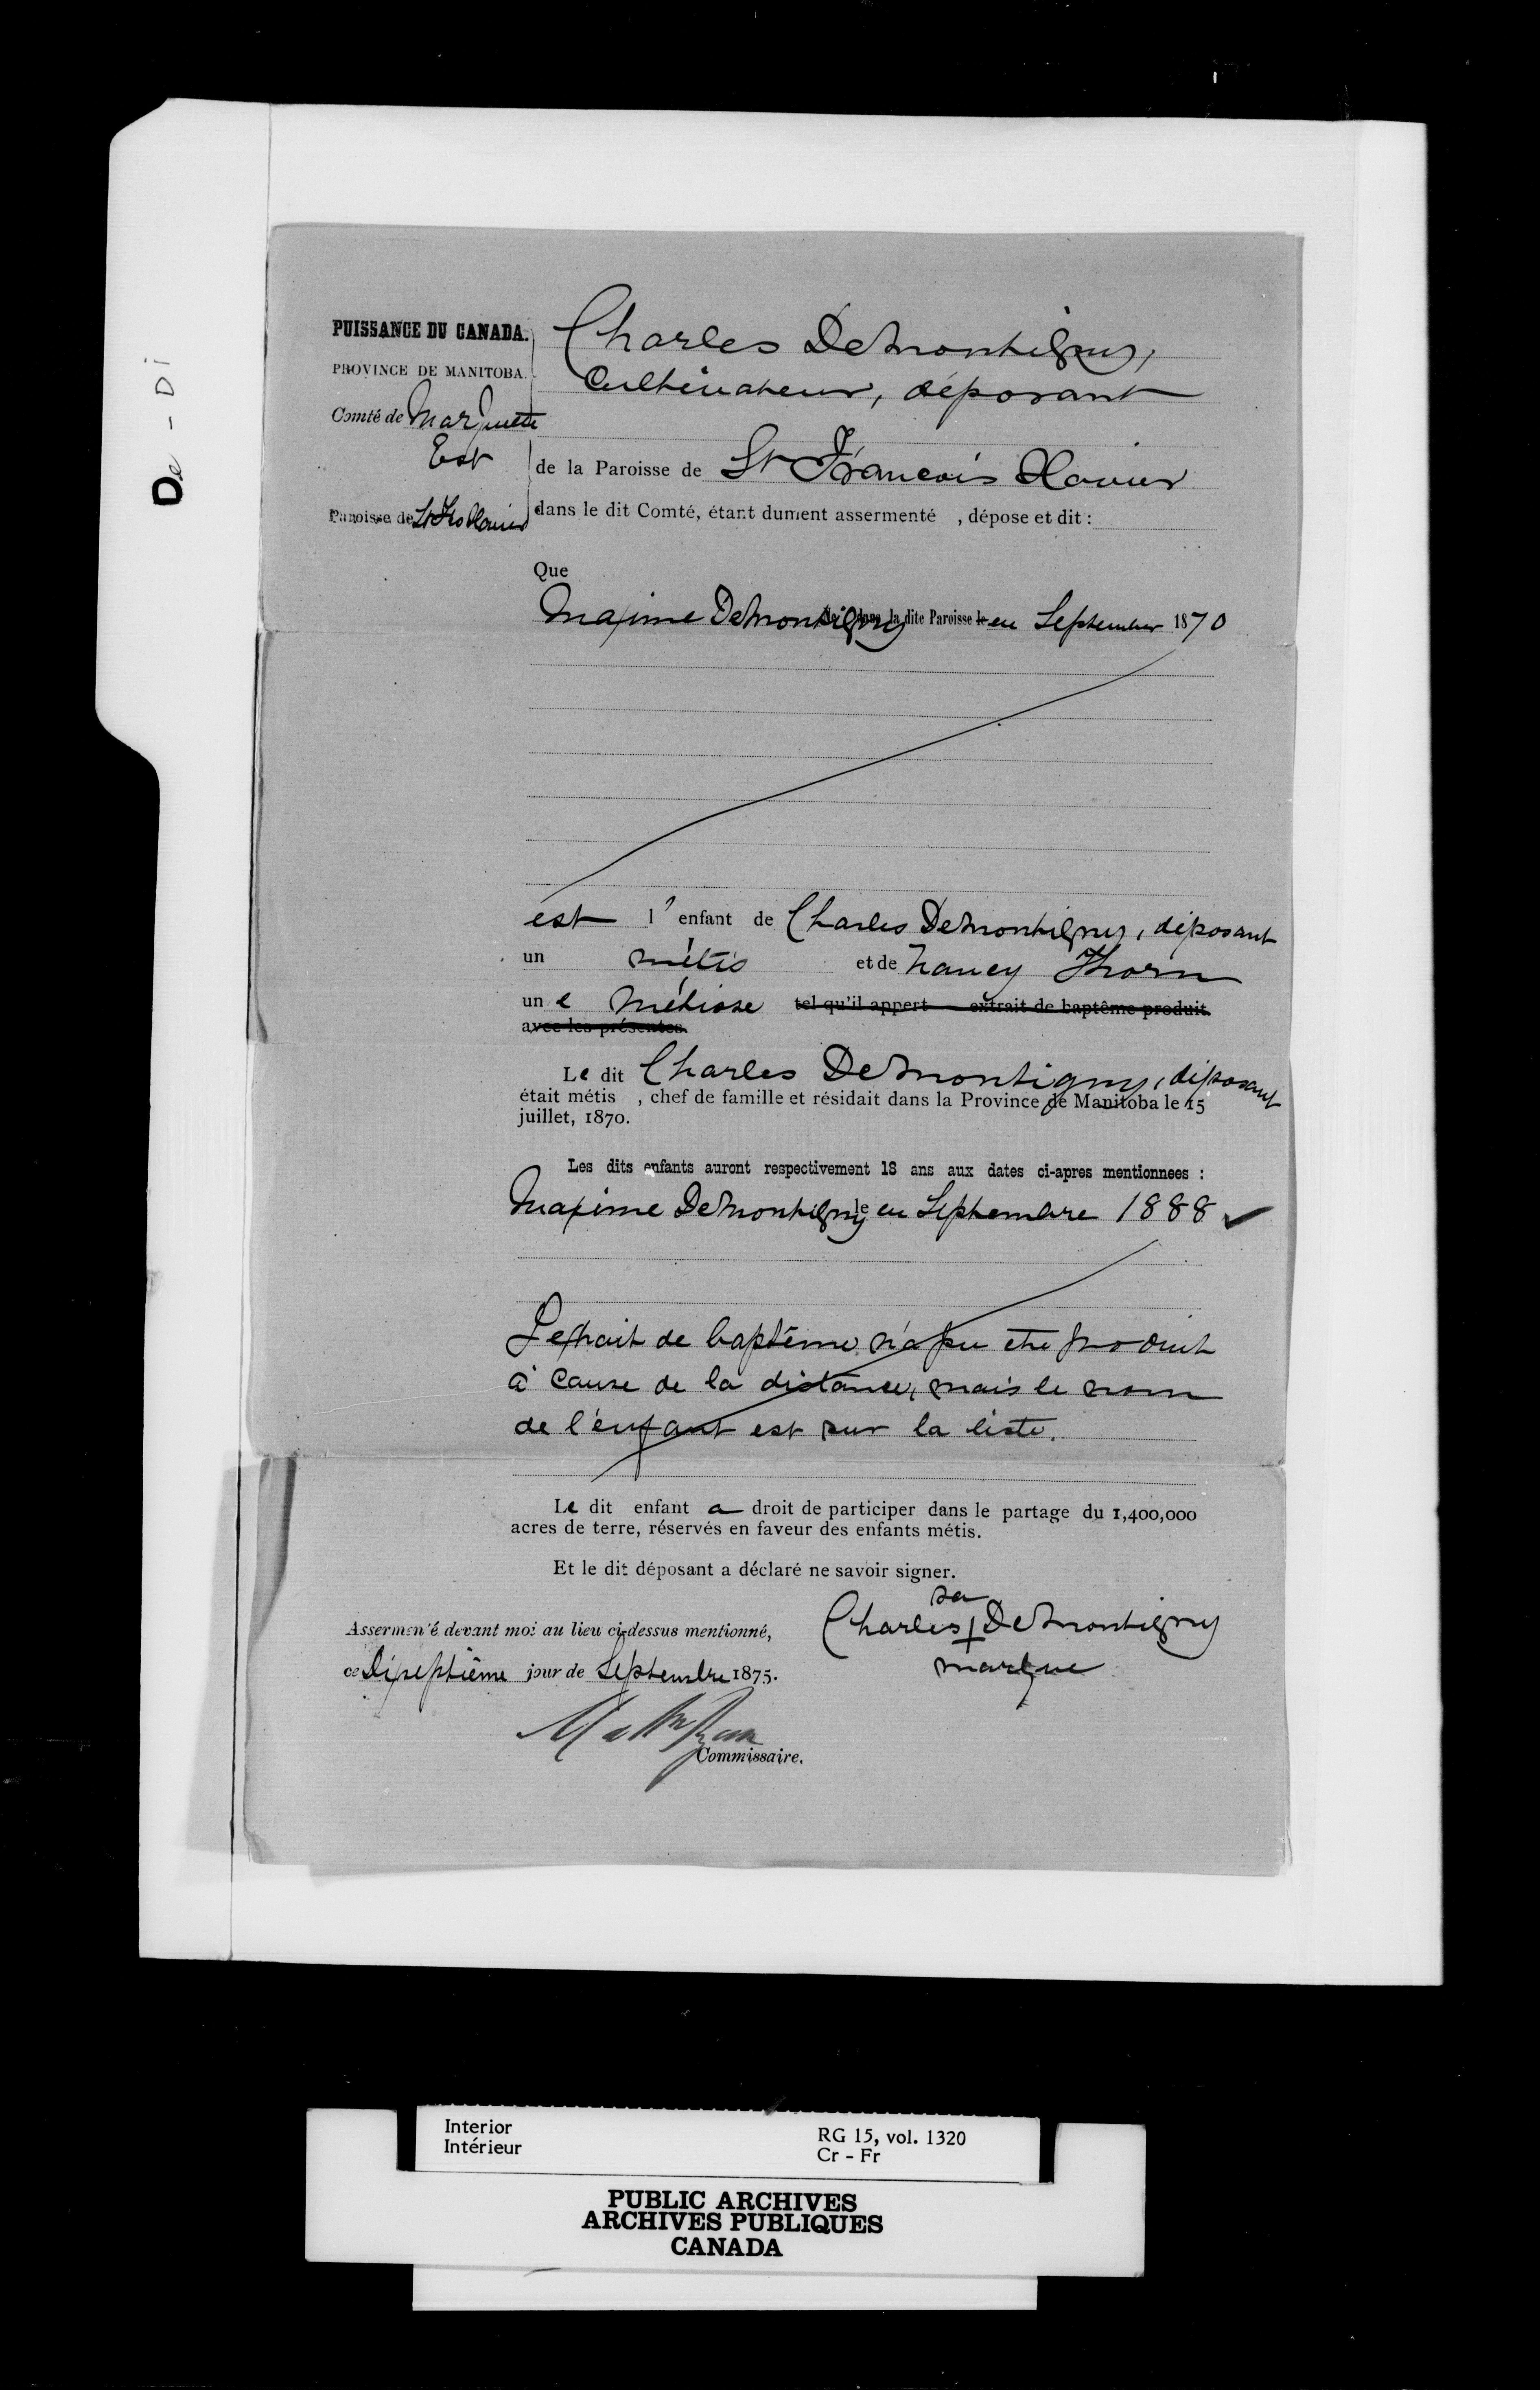 De - Di
PUISSANCE DU CANADA.
PROVINCE DE MANITOBA.
Comté de Marquette
Est
Paroisse de St Frs Xavier
Charles DeMontigny,
Cultivateur, déposant
de la Paroisse de St François Xavier
dans le dit Comté, étant dument assermenté , dépose et dit :
Que
Maxime DeMontigny né dans la dite Paroisse le en September 1870
est l' enfant de Charles DeMontigny, déposant
un métis et de Nancy Thorn
une Métisse tel qu'il appert extrait de baptême produit
avec les présentes.
Le dit Charles DeMontigny, déposant
était métis , chef de famille et résidait dans la Province de Manitoba le 15
juillet, 1870.
Les dits enfants auront respectivement 18 ans aux dates ci-apres mentionnees :
Maxime DeMontigny le en Septembre 1888 ✓
L'extrait de baptême n'a pu etre produit
à cause de la distance, mais le nom
de l'enfant est sur la liste.
Le dit enfant a droit de participer dans le partage du 1,400,000
acres de terre, réservés en faveur des enfants métis.
Et le dit déposant a déclaré ne savoir signer.
sa
Charles + DeMontigny
marque
Assermen'é devant moi au lieu ci-dessus mentionné,
ce Dixseptième jour de Septembre 1875.
Commissaire.
Interior
Intérieur
RG 15, vol. 1320
Cr - Fr
PUBLIC ARCHIVES
ARCHIVES PUBLIQUES
CANADA